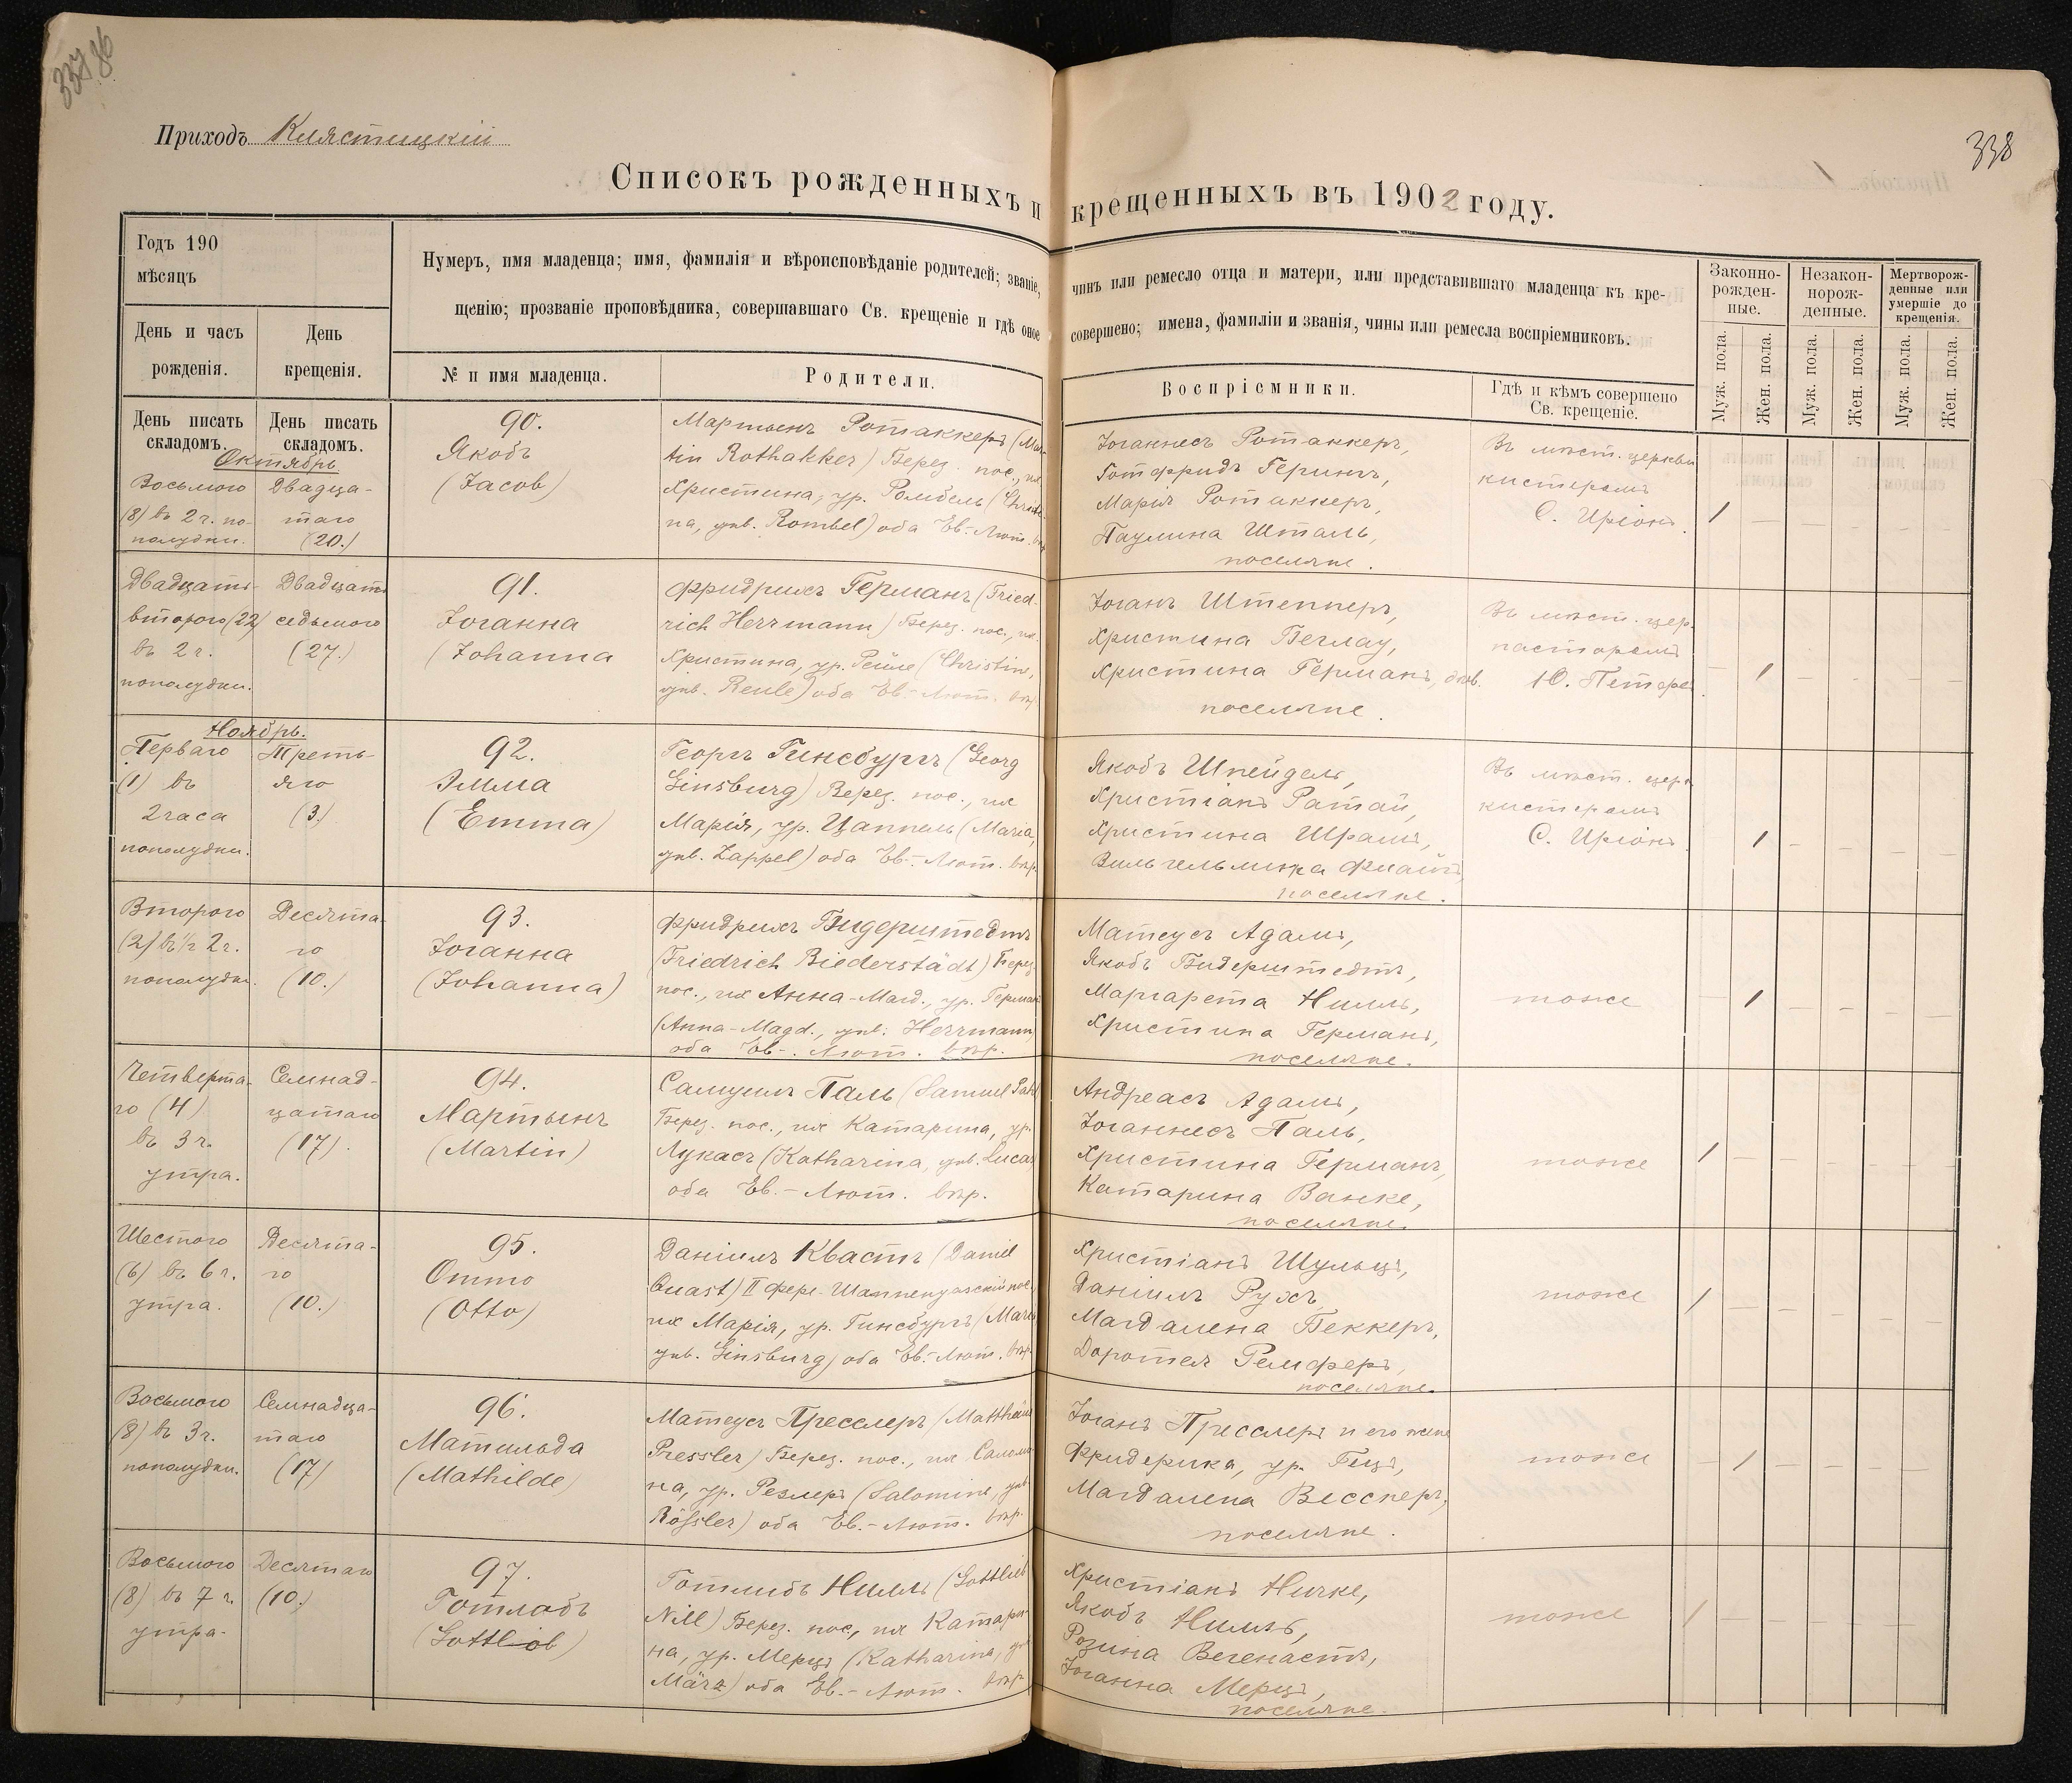 337 86
338
Приходъ Клястицкій
Списокъ рожденныхъ и крещенныхъ въ 1902 году.
Годъ 190
мѣсяцъ
День и часъ
рожденія.
День
крещенія.
Нумеръ, имя младенца; имя, фамилія и вѣроисповѣданіе родителей; званіе, чинъ или ремесло отца и матери, или представившаго младенца къ кре-
щенію; прозваніе проповѣдника, совершавшаго Св. крещеніе и гдѣ оное совершено; имена, фамиліи и званія, чины или ремесла воспріемниковъ.
№ и имя младенца.
Родители.
Воспріемники.
Гдѣ и кѣмъ совершено
Св. крещеніе.
Законно-
рожден-
ные.
Незакон-
норож-
денные.
Мертворож-
денные или
умершіе до
крещенія.
Муж. пола.
Жен. пола.
Муж. пола.
Жен. пола.
Муж. пола.
Жен. пола.
День писать
складомъ.
День писать
складомъ.
Октябрь
Восьмого
(8) въ 2 ч. по-
полудни.
Двадца-
таго
(20.)
90.
Якобъ
(Jacob)
Мартынъ Ротаккеръ (Mar-
tin Rothakker) Берез. пос., их
Христина, ур. Ромбель (Christi-
na, geb. Rombel) оба Ев.-Лют. вѣр
Іоганнесъ Ротаккеръ,
Готфридъ Герингъ,
Марія Ротаккеръ,
Паулина Шталь,
поселяне.
Въ мѣст. церкви
кистеромъ
С. Иріонъ.
1 — — — — —
Двадцать
второго (22)
въ 2 ч.
пополудни.
Двадцать
седьмого
(27.)
91.
Іоганна
(Johanna
Фридрихъ Германъ (Fried-
rich Herrmann) Берез. пос., их
Христина, ур. Рейле (Christine,
geb. Reule) оба Ев.-Лют. вѣр.
Іоганъ Штепперъ,
Христина Беглау,
Христина Германъ, дѣв.
поселяне.
Въ мѣст. цер.
пасторомъ
Ю. Петерс.
— 1 — — — —
Ноябрь.
Перваго
(1) въ
2 часа
пополудни.
Треть-
яго
(3.)
92.
Эмма
(Emma)
Георгъ Гинсбургъ (Georg
Ginsburg) Берез. пос., их
Марія, ур. Цаппель (Maria,
geb. Zappel) оба Ев.-Лют. вѣр.
Якобъ Шнейдеръ,
Христіанъ Ратай,
Христина Шрамъ,
Вильгельмина Фиаитъ,
поселяне.
Въ мѣст. церк
кистеромъ
С. Иріонъ.
1 — — — —
Второго
(2) въ ½ 2 ч.
пополудн.
Десята-
го
(10.)
93.
Іоганна
(Johanna)
Фридрихъ Бидерштедтъ
(Friedrich Biederstädt) Берез.
пос., их Анна-Магд., ур. Герман
(Anna-Magd., geb. Herrmann)
оба Ев.-Лют. вѣр.
Матеусъ Адамъ,
Якобъ Бидерштедтъ,
Маргарета Нилль,
Христина Германъ,
поселяне.
тоже
— 1 — — — —
Четверта-
го (4)
въ 3 ч.
утра.
Семнад-
цатаго
(17).
94.
Мартынъ
(Martin)
Самуилъ Паль (Samuel Pahl)
Берез. пос., их Катарина, ур.
Лукасъ (Katharina, geb. Lucas)
оба Ев.-Лют. вѣр.
Андреасъ Адамъ,
Іоганнесъ Паль,
Христина Германъ,
Катарина Ванке,
поселяне.
тоже
1 — — — — —
Шестого
(6) въ 6 ч.
утра.
Десята-
го
(10.)
95.
Отто
(Otto)
Даніилъ Квастъ (Daniel
Quast) II Фере-Шампенуазскій пос.
их Марія, ур. Гинсбургъ (Maria
geb. Ginsburg) оба Ев.-Лют. вѣр
Христіанъ Шульцъ,
Даніилъ Рухъ,
Магдалена Беккеръ,
Доротея Ремферъ,
поселяне.
тоже
1 — — — — —
Восьмого
(8) въ 3 ч.
пополудни.
Семнадца-
таго
(17)
96.
Матильда
(Mathilde)
Матеусъ Пресслеръ (Matthäus
Pressler) Берез. пос., их Саломи-
на, ур. Резлеръ (Salomine, geb
Rößler) оба Ев.-Лют. вѣр.
Іоганъ Пресслеръ и его жена
Фридерика, ур. Гецъ,
Магдалена Весснеръ,
поселяне.
тоже
— 1 — — — —
Восьмого
(8) въ 7 ч.
утра.
Десятаго
(10.)
97.
Готлобъ
(Gottlob)
Готлибъ Нилль (Gottlieb
Nill) Берез. пос., их Катари-
на, ур. Мерцъ (Katharina, geb
März) оба Ев.-Лют. вѣр
Христіанъ Ничке,
Якобъ Нилль,
Розина Вегенастъ,
Іоганна Мерцъ,
поселяне.
тоже
1 — — — — —